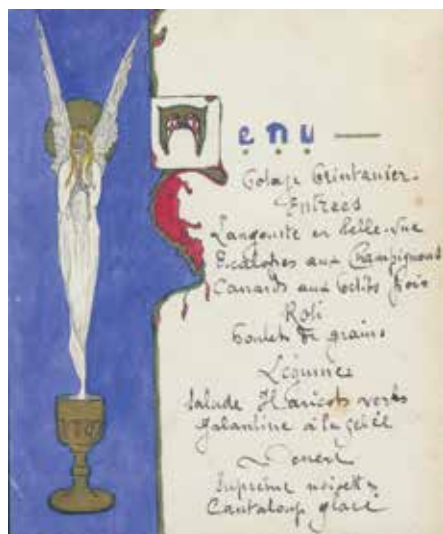 Menu
Potage Printanier.
Entrees
Langouste en belle-vue
Escalopes aux Champignons
Canards aux Petits Pois
Roti
Poulets de grains
Légumes
Salade Haricots verts
Galantine à la gelée
Dessert
Suprême noisette
Cantaloup glacé